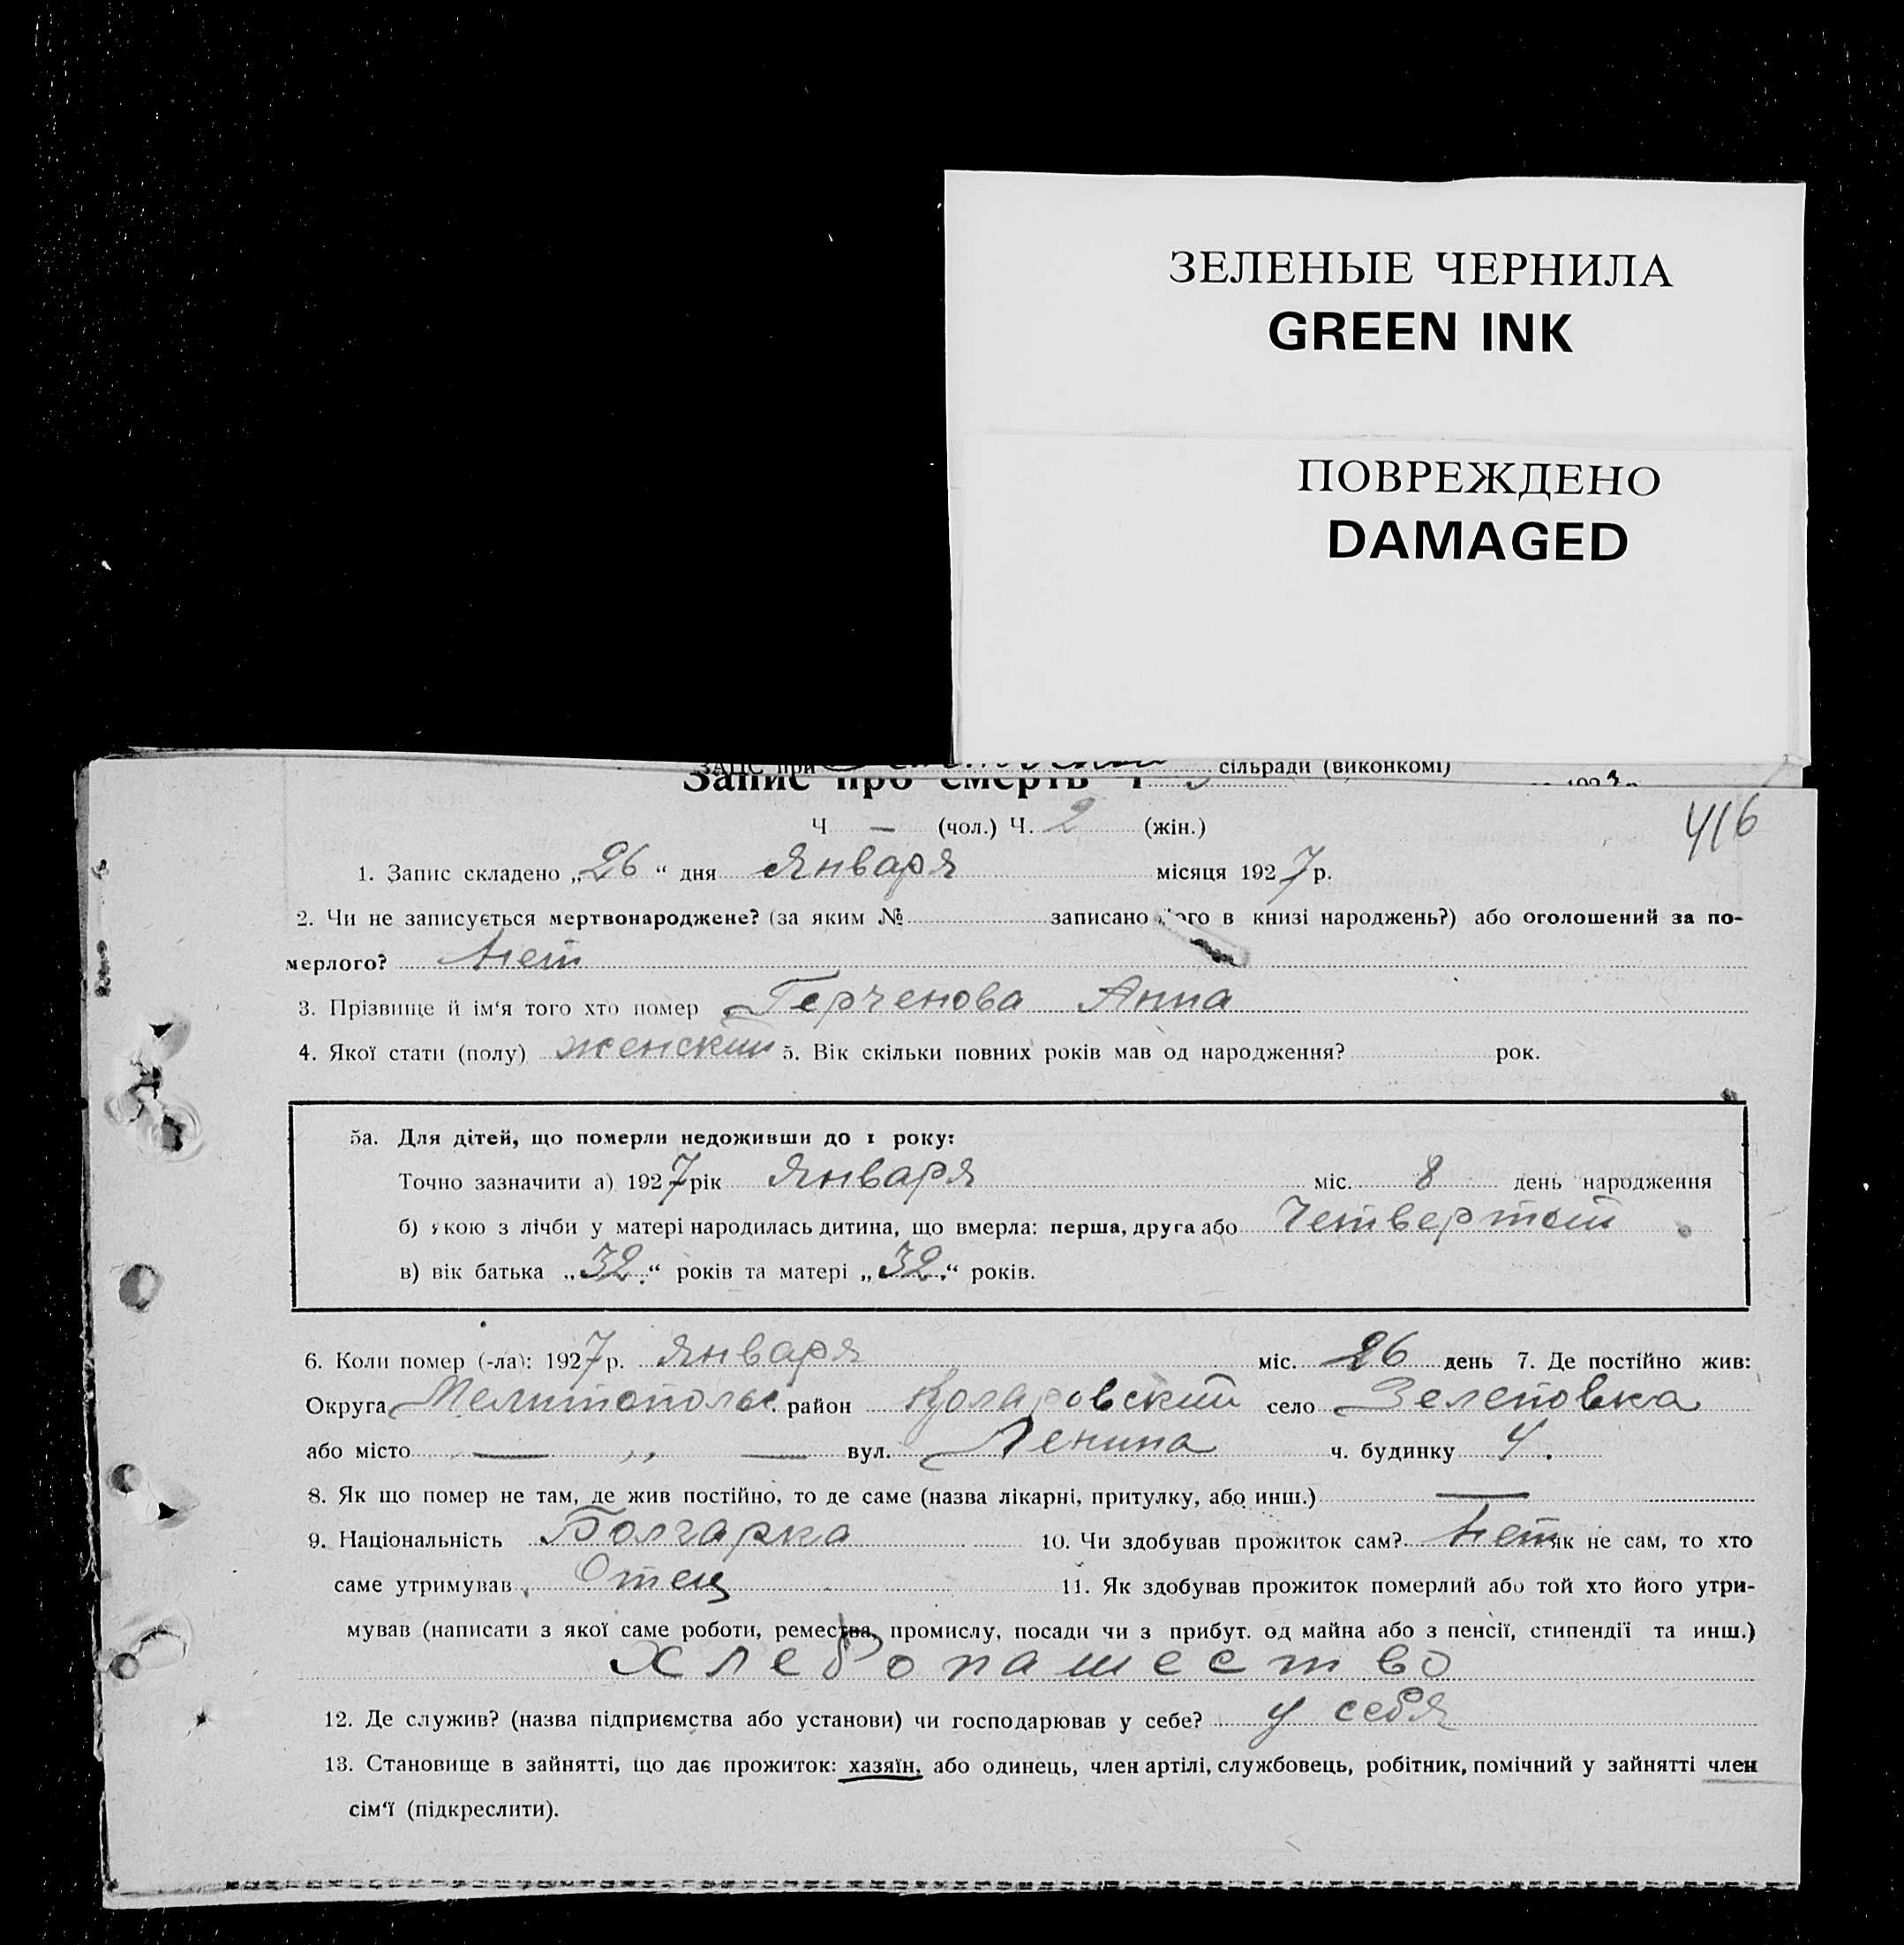 ЗЕЛЕНЫЕ ЧЕРНИЛА
GREEN INK
ПОВРЕЖДЕНО
DAMAGED
ЗАПС при сільради (виконкомі)
Запис про смерть Ч
416
Ч — (чол.) Ч. 2 (жін.)
1. Запис складено „26“ дня Января місяця 1927 р.
2. Чи не записується мертвонароджене? (за яким № записано його в книзі народжень?) або оголошений за по-
мерлого? Нет
3. Прізвище й ім‘я того хто помер Герченова Анна
4. Якої стати (полу) женский 5. Вік скільки повних років мав од народження? рок.
5а. Для дітей, що померли недоживши до 1 року:
Точно зазначити а) 1927 рік Января міс. 8 день народження
б) якою з лічби у матері народилась дитина, що вмерла: перша, друга або Четвертой
в) вік батька „32.“ років та матері „32.“ років.
6. Коли помер (-ла): 1927 р. Января міс. 26 день 7. Де постійно жив:
Округа Мелитопольс. район Коларовский село Зеленовка
або місто — „ — вул. Ленина ч. будинку 4.
8. Як що помер не там, де жив постійно, то де саме (назва лікарні, притулку, або инш.) —
9. Національність Болгарка 10. Чи здобував прожиток сам? Нет як не сам, то хто
саме утримував Отец 11. Як здобував прожиток померлий або той хто його утри-
мував (написати з якої саме роботи, ремества, промислу, посади чи з прибут. од майна або з пенсії, стипендії та инш.)
хлебопашество
12. Де служив? (назва підприємства або установи) чи господарював у себе? у себя
13. Становище в зайнятті, що дає прожиток: хазяїн, або одинець, член артілі, службовець, робітник, помічний у зайнятті член
сім‘ї (підкреслити).